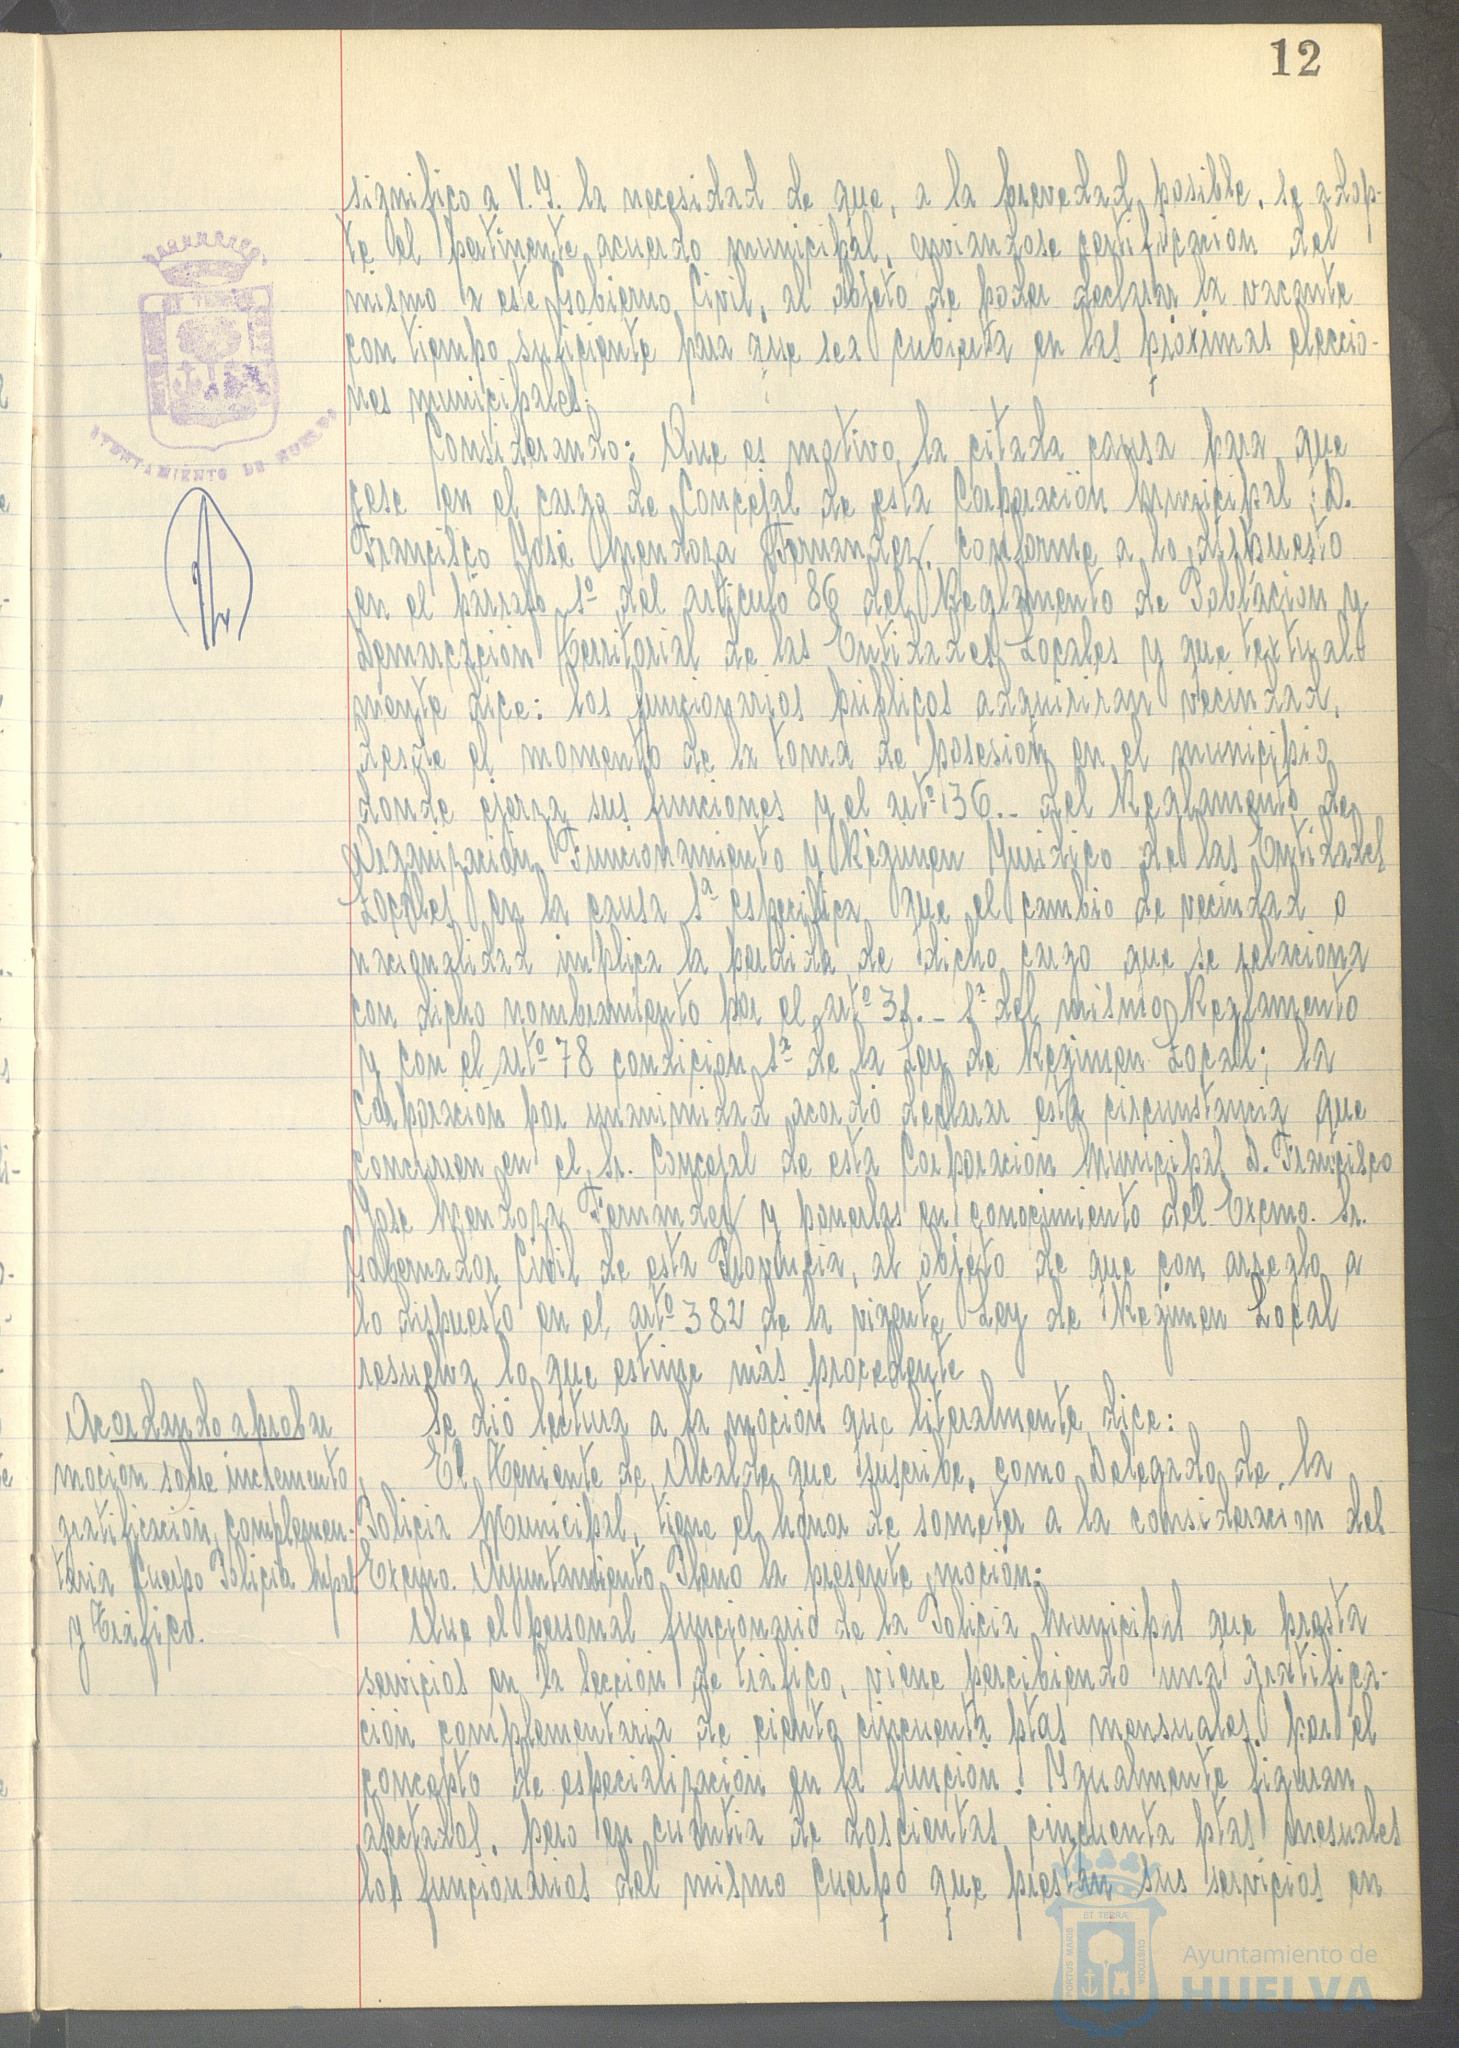 12
significo a V.I. la necesidad de que, a la brevedad posible, se adop-
te el pertinente acuerdo municipal, enviandose certificacion del
mismo a este Gobierno Civil, al objeto de poder declarar la vacante
con tiempo suficiente para que sea cubierta en las próximas eleccio-
nes municipales.
Considerando: Que es motivo la citada causa para que
cese en el cargo de Concejal de esta Corporación Municipal, D.
Francisco José Mendoza Fernandez, conforme a lo dispuesto
en el párrafo 1º del articulo 86 del Reglamento de Población y
Demarcación Territorial de las Entidades Locales y que textual-
mente dice: los funcionarios públicos adquiriran vecindad,
desde el momento de la toma de posesión en el municipio
donde ejerza sus funciones y el artº 136.- del Reglamento de
Organización Funcionamiento y Régimen Juridico de las Entidades
Locales en la causa 1ª especifica que el cambio de vecindad o
nacionalidad implica la perdida de dicho cargo que se relaciona
con dicho nombramiento por el artº 31.- 1ª del mismo Reglamento
y con el artº 78 condicion 1ª de la Ley de Régimen Local; la
Corporacion por unanimidad acordó declarar esta circunstancia que
concurren en el Sr. Concejal de esta Corporación Municipal D. Francisco
José Mendoza Fernandez y ponerlas en conocimiento del Excmo. Sr.
Gobernador Civil de esta Provincia, al objeto de que con arreglo a
lo dispuesto en el artº 382 de la vigente Ley de Régimen Local
resuelva lo que estime más procedente
Se dió lectura a la moción que literalmente dice:
Acordando aprobar
moción sobre incremento
gratificación complemen-
taria Cuerpo Policia Mpal
y Tráfico.
El Teniente de Alcalde que suscribe, como Delegado de la
Policia Municipal, tiene el honor de someter a la consideracion del
Excmo. Ayuntamiento Pleno la presente moción:
Que el personal funcionario de la Policia Municipal que presta
servicios en la Sección de tráfico, viene percibiendo una gratifica-
ción complementaria de ciento cincuenta ptas mensuales, por el
concepto de especialización en la función. Igualmente figuran
afectados, pero en cuantia de doscientas cincuenta ptas mesuales
los funcionarios del mismo Cuerpo que prestan sus servicios en
AYUNTAMIENTO DE HUELVA
PORTUS MARIS ET TERRAE CUSTODIA
Ayuntamiento de
HUELVA